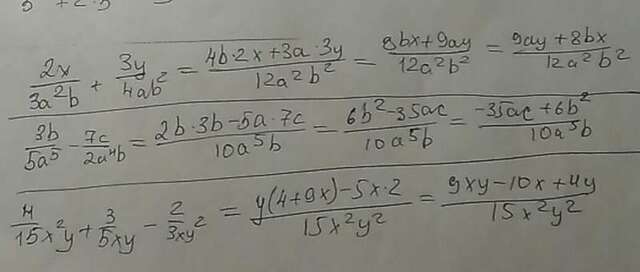 2x/3a²b + 3y/4ab² = (4b·2x+3a·3y)/12a²b² = (8bx+9ay)/12a²b² = (9ay+8bx)/12a²b²
3b/5a⁵ - 7c/2a⁴b = (2b·3b-5a·7c)/10a⁵b = (6b²-35ac)/10a⁵b = (-35ac+6b²)/10a⁵b
4/15x²y + 3/5xy - 2/3xy² = (y(4+9x)-5x·2)/15x²y² = (9xy-10x+4y)/15x²y²